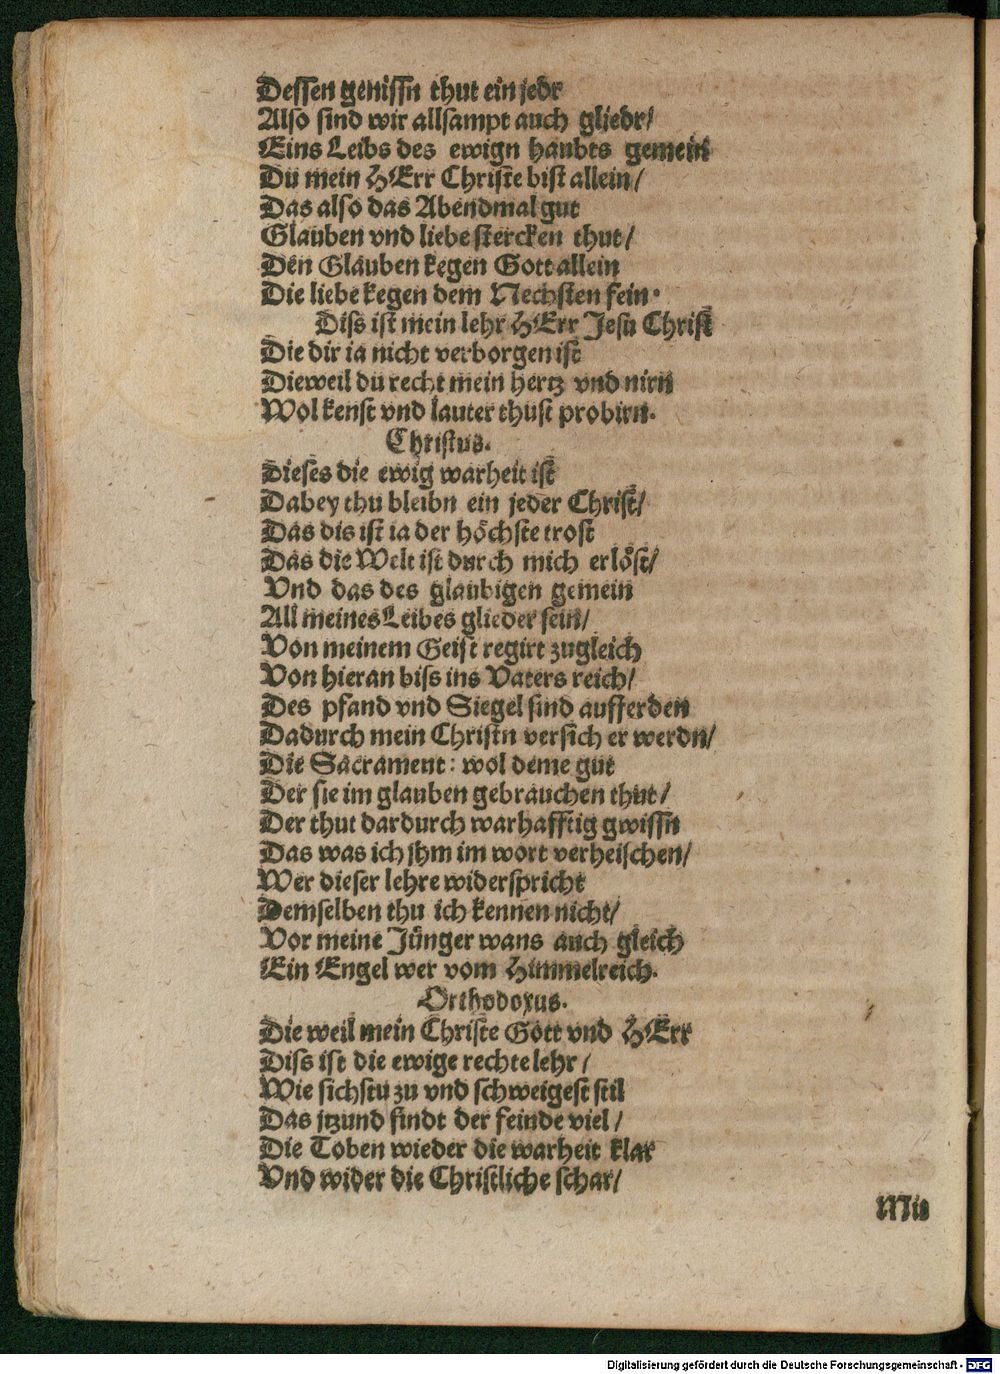 Dessen genissn thut ein jedr
Also sind wir allsampt auch gliedr/
Eins Leibs des ewign haubts gemein
Du mein HErr Christe bist allein/
Das also das Abendmal gut
Glauben vnd liebe stercken thut/
Den Glauben kegen Gott allein
Die liebe kegen dem Nechsten fein.
Diss ist mein lehr HErr Jesu Christ
Die dir ia nicht verborgen ist
Dieweil du recht mein hertz vnd nirn
Wol kenst vnd lauter thust probirn.
Christus.
Dieses die ewig warheit ist
Dabey thu bleibn ein jeder Christ/
Das dis ist ia der höchste trost
Das die Welt ist durch mich erlöst/
Vnd das des glaubigen gemein
All meines Leibes glieder sein/
Von meinem Geist regirt zugleich
Von hieran biss ins Vaters reich/
Des pfand vnd Siegel sind aufferden
Dadurch mein Christn versich er werdn/
Die Sacrament: wol deme gut
Der sie im glauben gebrauchen thut/
Der thut dardurch warhafftig gwissn
Das was ich jhm im wort verheischen/
Wer dieser lehre widerspricht
Demselben thu ich kennen nicht/
Vor meine Jünger wans auch gleich
Ein Engel wer vom Himmelreich.
Orthodoxus.
Die weil mein Christe Gott vnd HErr
Diss ist die ewige rechte lehr/
Wie sichstu zu vnd schweigest stil
Das jtzund findt der feinde viel/
Die Toben wieder die warheit klar
Vnd wider die Christliche schar/
Mit
Digitalisierung gefördert durch die Deutsche Forschungsgemeinschaft - DFG